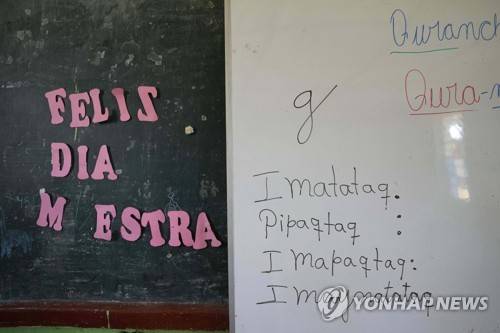 FELIZ
DIA
M ESTRA
YONHAP NEWS
Quranch
Qura-
g
Imatataq.
Pipaqtaq :
Imapaqtaq:
YONHAP NEWS